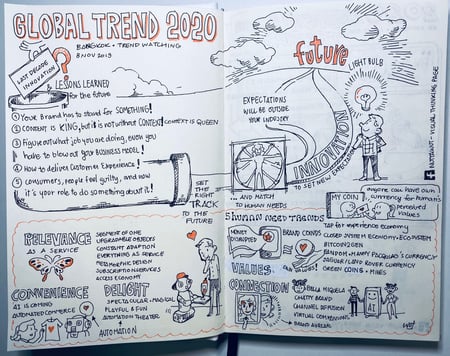 GLOBAL TREND 2020
BANGKOK • TREND WATCHING
8 NOV 2019
LAST DECADE
INNOVATION
?
& LESSONS LEARNED
for the future
① Your Brand has to stand for SOMETHING!
② CONTENT is KING, but it is not without CONTEXT! CONTEXT is QUEEN
③ Figure out what job you are doing, even you
have to blew out your BUSINESS MODEL!
④ How to deliver Customer Experience!
⑤ consumers, people feel guilty, and now
it's your role to do something about it!
SET
THE
RIGHT
TRACK
TO THE
FUTURE
RELEVANCE
AS A SERVICE
SEGMENT OF ONE
UPGRADABLE OBJECTS
CONSTANT ADAPTION
EVERYTHING AS SERVICE
METAMORPHIC DESIGN
SUBSCRIPTION SERVICES
ACCESS ECONOMY
CONVENIENCE
AI IS COMING
AUTOMATED COMMERCE
DELIGHT
SPECTACULAR • MAGICAL
PLAYFUL & FUN
AUTOMATION THEATER
AUTOMATION
future
LIGHT BULB
EXPECTATIONS
WILL BE OUTSIDE
YOUR INDUSTRY
INNOVATION
TO SET NEW EXPECTATION
... AND MATCH
TO HUMAN NEEDS
- VISUAL THINKING PAGE
MY COIN
anyone can have own
currency for human's
perceived
values
5 HUMAN NEED TRENDS
MONEY
DISRUPTED
BRAND COINDS
VALUES
Tap the experience economy
CLOSED SYSTEM ECONOMY, ECOSYSTEM
BITCOIN2GEN
RANDOM • MANNY PACQUIAO'S CURRENCY
JAGUAR/LAND ROVER CURRENCY
GREEN COINS • MILES
CONNECTION
LIL MIQUELA
CHATTY BRAND
CHANNEL OF MILLION
VIRTUAL COMPANIONS
BRAND AVATARS
AI